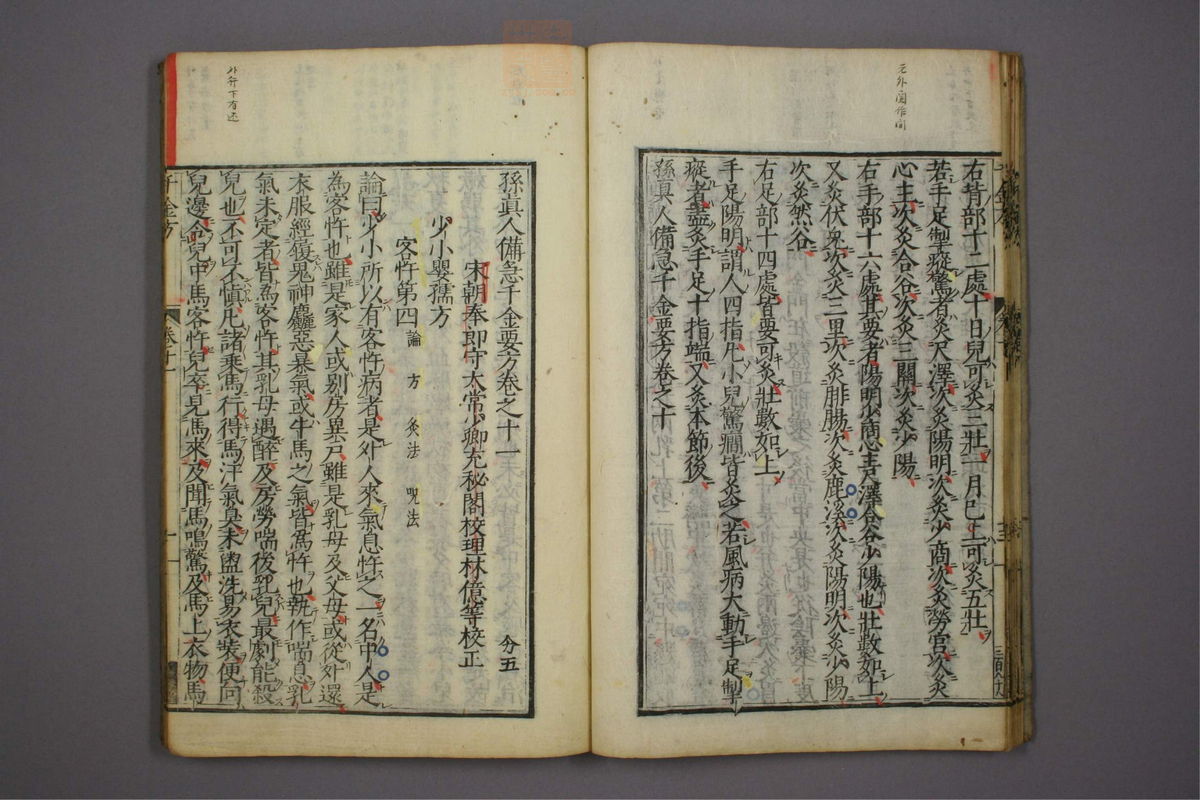 右背部十二處十日兒可灸三壯一月已上可灸五壯
若手足掣瘲驚者灸尺澤次灸陽明次灸少商次灸勞宫次灸
心主次灸合谷次灸三關次灸少陽
右手部十六處其要者陽明少商心主尺澤合谷少陽也壯數如上
又灸伏兔次灸三里次灸腓腸次灸鹿溪次灸陽明次灸少陽
次灸然谷
右足部十四處皆要可灸壯數如上
手足陽明謂人四指凡小兒驚癇皆灸之若風病大動手足掣
瘲者盡灸手足十指端又灸本節後
孫眞人備急千金要方卷之十
孫眞人備急千金要方卷之十一 分五
宋朝奉郎守太常少卿充秘閣校理林億等校正
少小嬰孺方
客忤第四 論 方 灸法 呪法
論曰少小所以有客忤病者是外人來氣息忤之一名中人是
為客忤也雖是家人或别房異戸雖是乳母及父母或從外還
衣服經履鬼神麤惡暴氣或牛馬之氣皆爲忤也執作喘息乳
氣未定者皆爲客忤其乳母遇醉及房勞喘後乳兒最劇能殺
兒也不可不慎凡諸乘馬行得馬汗氣臭未盥洗易衣裝便向
兒邊令兒中馬客忤兒卒見馬來及聞馬鳴驚及馬上衣物馬
千金方
卷十一
外行下有还